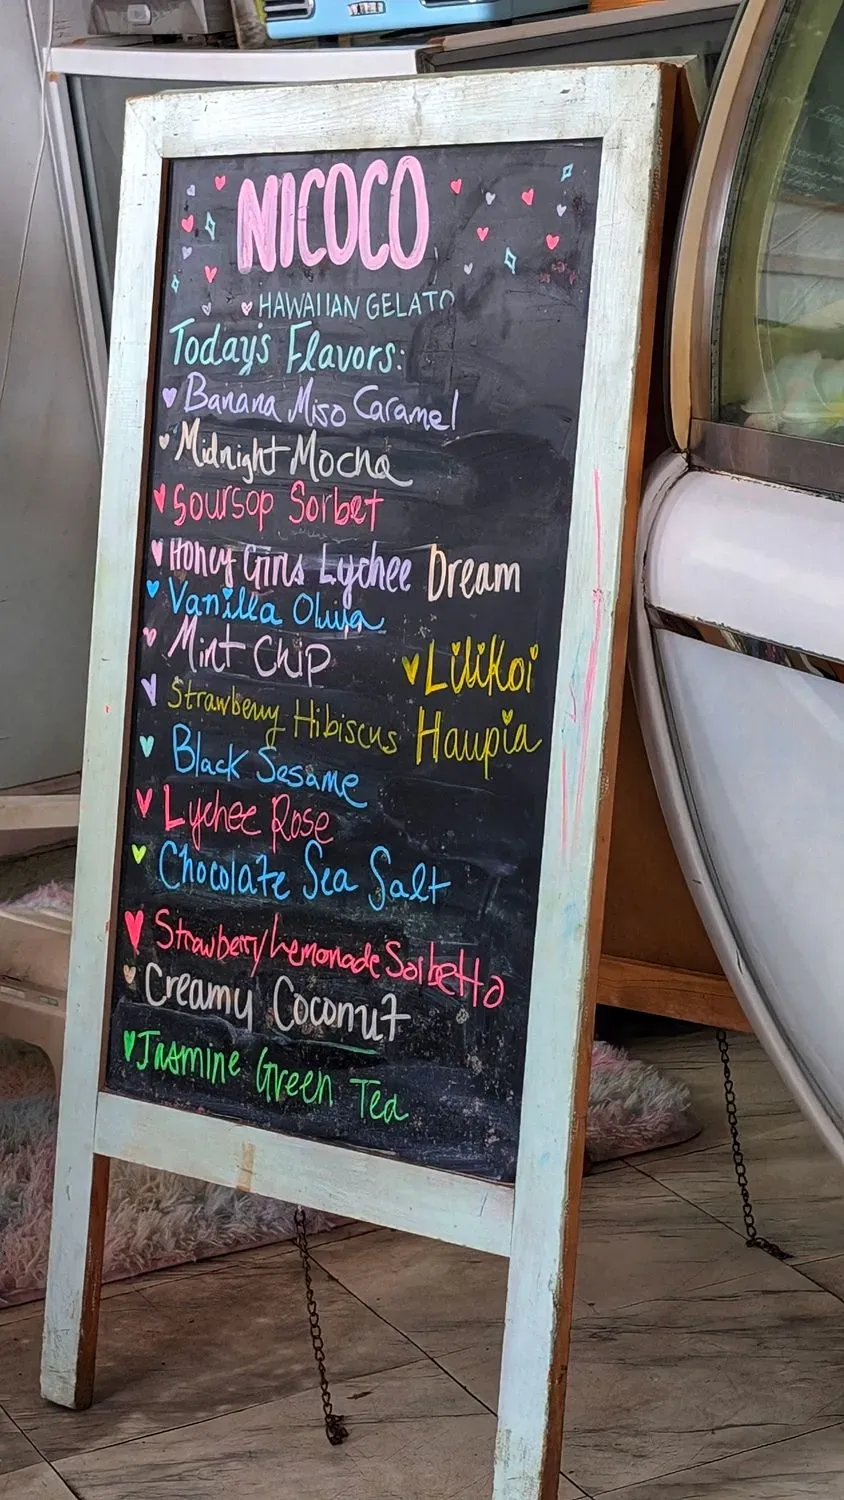 NICOCO
HAWAIIAN GELATO
Today's Flavors:
Banana Miso Caramel
Midnight Mocha
Soursop Sorbet
Honey Girls Lychee Dream
Vanilla Oluya
Mint Chip
Lilikoi
Haupia
Strawberry Hibiscus
Black Sesame
Lychee Rose
Chocolate Sea Salt
Strawberry/Lemonade Sorbetto
Creamy Coconut
Jasmine Green Tea